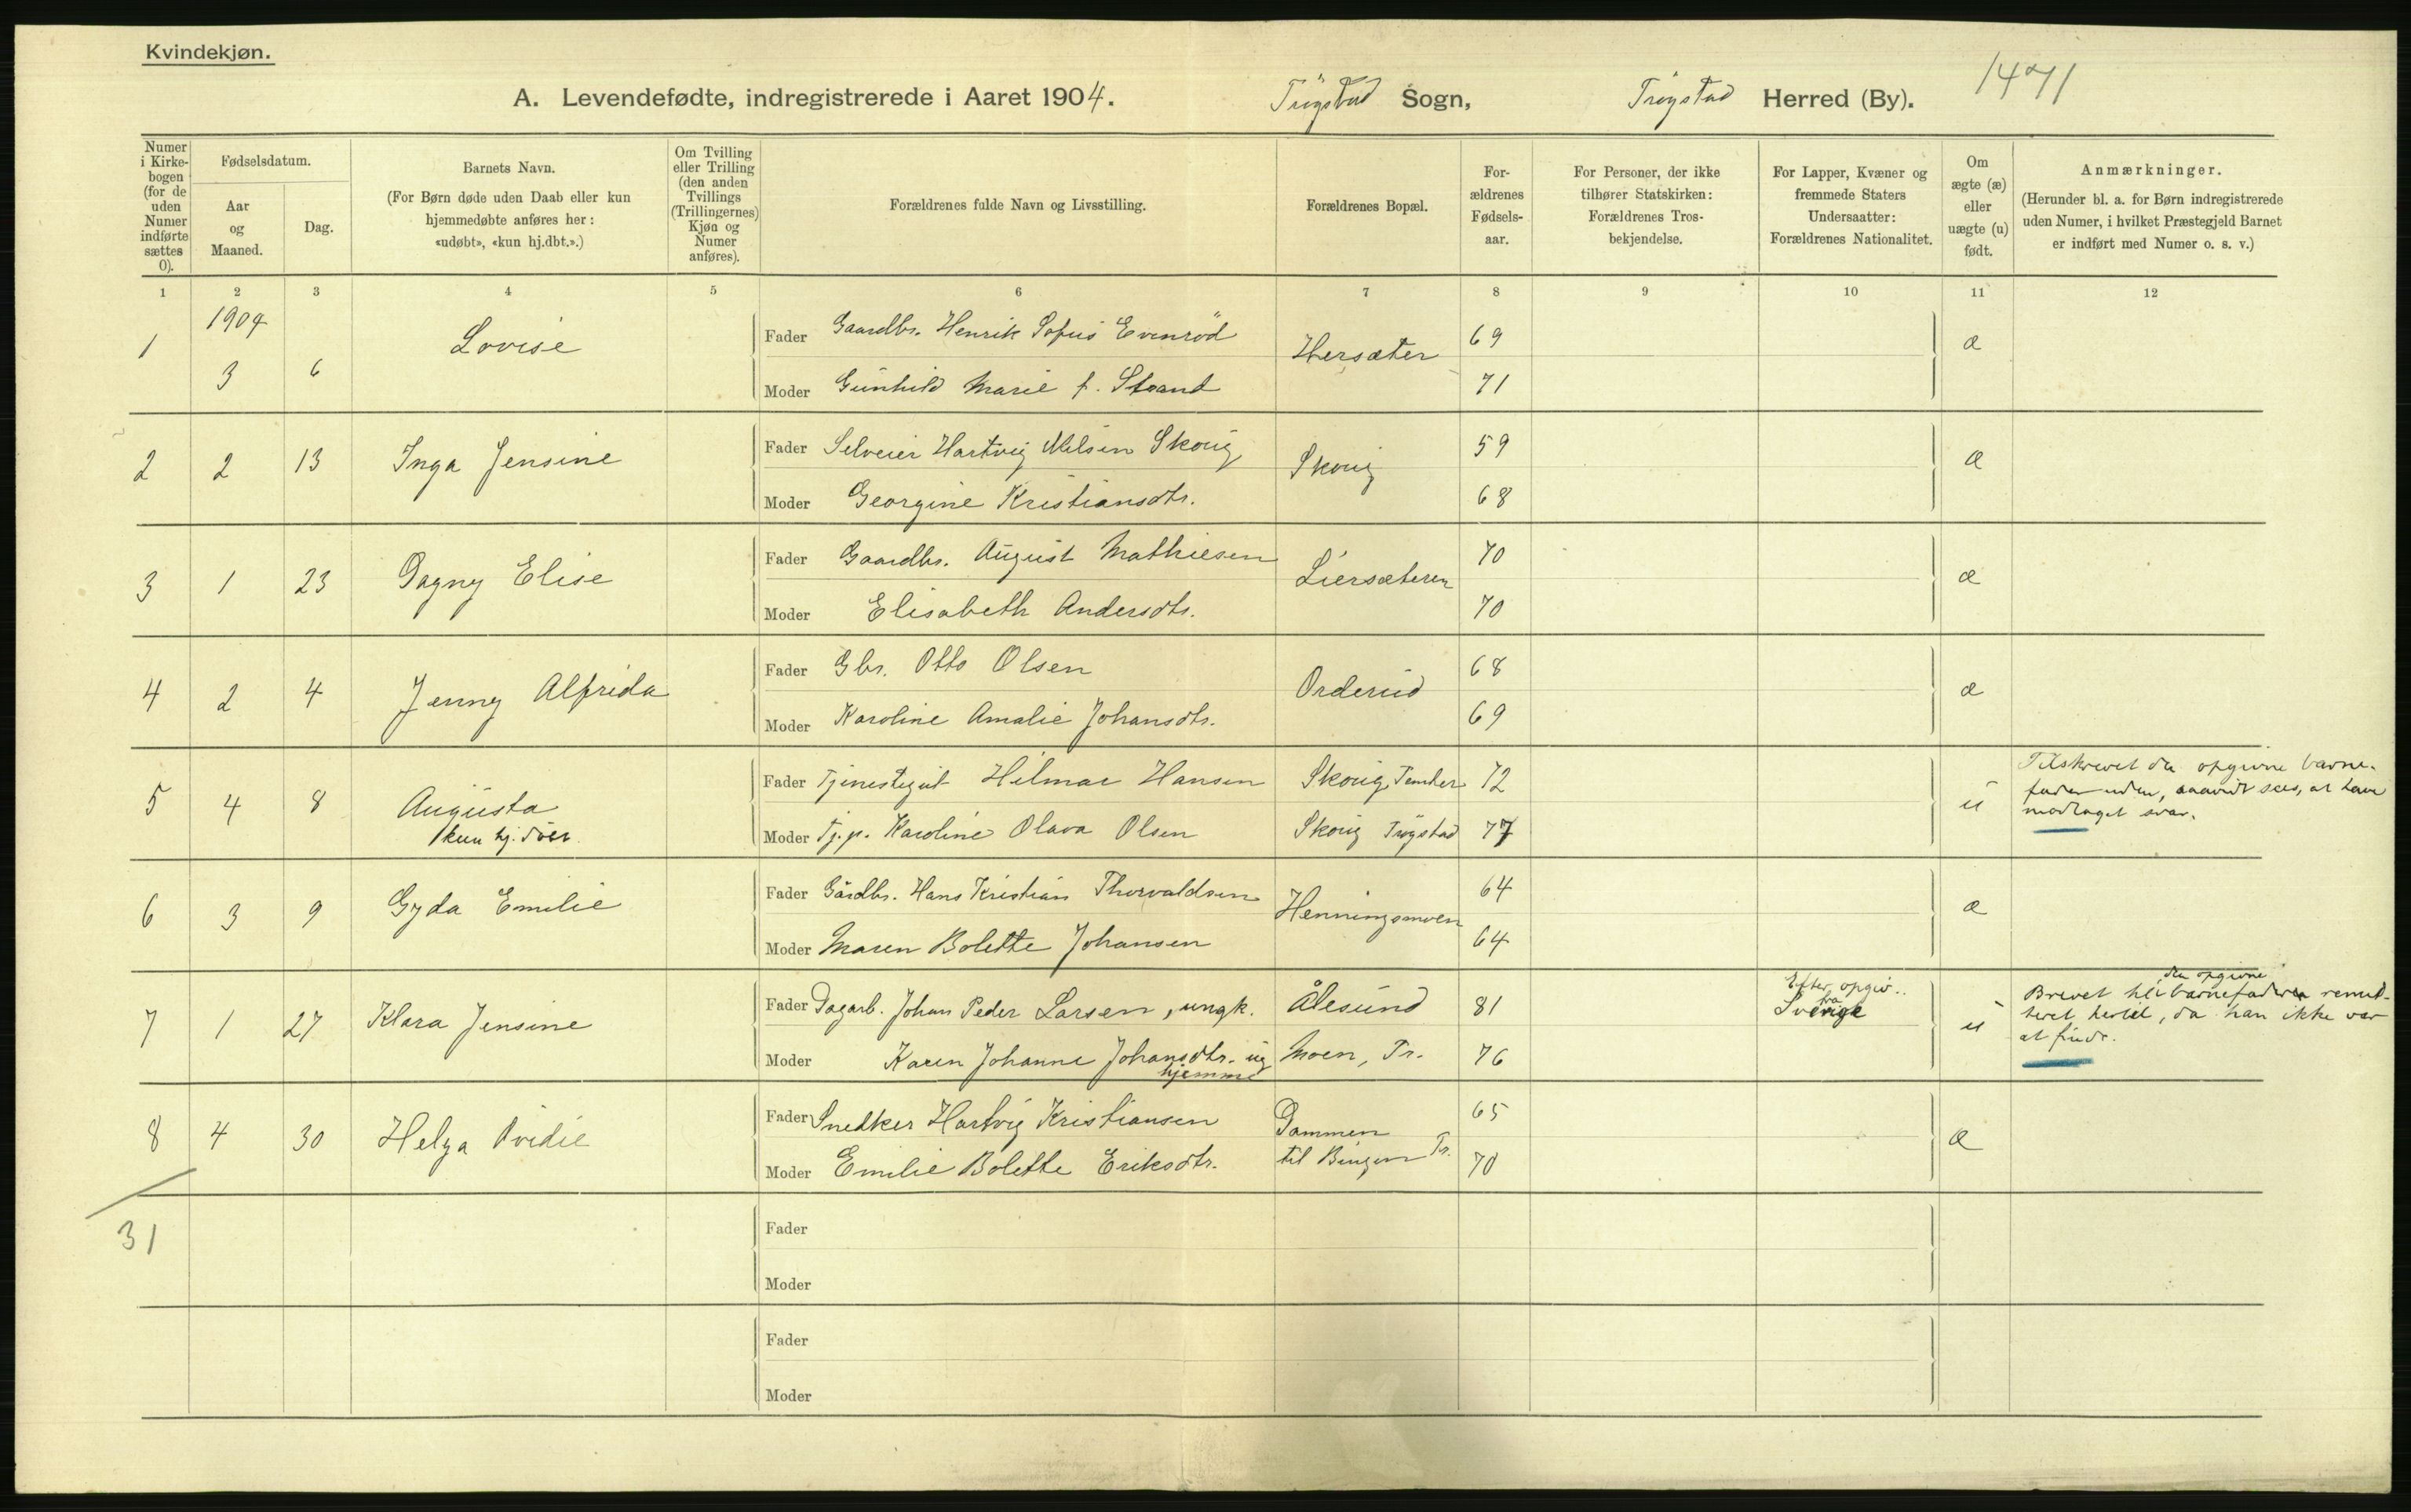 Kvindekjøn.
A. Levendefødte, indregistrerede i Aaret 1904. Trøgstad Sogn, Trøgstad Herred (By). 1471
Numer i Kirkebogen (for de uden Numer indførte sættes 0).
Fødselsdatum.
Aar og Maaned.
Dag.
Barnets Navn.
(For Børn døde uden Daab eller kun hjemmedøbte anføres her: «udøbt», «kun hj.dbt.».)
Om Tvilling eller Trilling (den anden Tvillings (Trillingernes) Kjøn og Numer anføres).
Forældrenes fulde Navn og Livsstilling.
Forældrenes Bopæl.
Forældrenes Fødselsaar.
For Personer, der ikke tilhører Statskirken: Forældrenes Trosbekjendelse.
For Lapper, Kvæner og fremmede Staters Undersaatter: Forældrenes Nationalitet.
Om ægte (æ) eller uægte (u) født.
Anmærkninger.
(Herunder bl. a. for Børn indregistrerede uden Numer, i hvilket Præstegjeld Barnet er indført med Numer o. s. v.)
1 2 3 4 5 6 7 8 9 10 11 12
1904
1 3 6 Lovise
Fader Gaardbr. Henrik Sofus Evenrød Hersæter 69 æ
Moder Gunhild Marie f. Strand 71
2 2 13 Inga Jensine
Fader Selveier Hartvig Nilsen Skoug Skoug 59 æ
Moder Georgine Kristiansdtr. 68
3 1 23 Dagny Elise
Fader Gaardbr. August Mathiesen Liersæteren 70 æ
Moder Elisabeth Andersdtr. 70
4 2 4 Jenny Alfrida
Fader Gbr. Otto Olsen Orderud 68 æ
Moder Karoline Amalie Johansdtr. 69
5 4 8 Augusta
kun hj. døbt
Fader Tjenestegut Hilmar Hansen Skoug 72 u
Moder Tj.p. Karoline Olava Olsen Skoug Trøgstad 77
Tilskrevet den opgivne barnefader uden, saavidt sees, at have modtaget svar.
6 3 9 Gyda Emilie
Fader Gårdbr. Hans Kristian Thorvaldsen Henningsmoen 64 æ
Moder Maren Bolette Johansen 64
7 1 27 Klara Jensine
Fader Dagarb. Johan Peder Larsen, ungk. Ålesund 81 Efter opgiv. fra Sverige u
Moder Karen Johanne Johansdtr. ug hjemme Moen, Tr. 76
Brevet til den opgivne barnefader remitteret hertil, da han ikke var at finde.
8 4 30 Helga Ovidie
Fader Snedker Hartvig Kristiansen Dammen til Bingen Tr. 65 æ
Moder Emilie Bolette Eriksdtr. 70
31
Fader
Moder
Fader
Moder